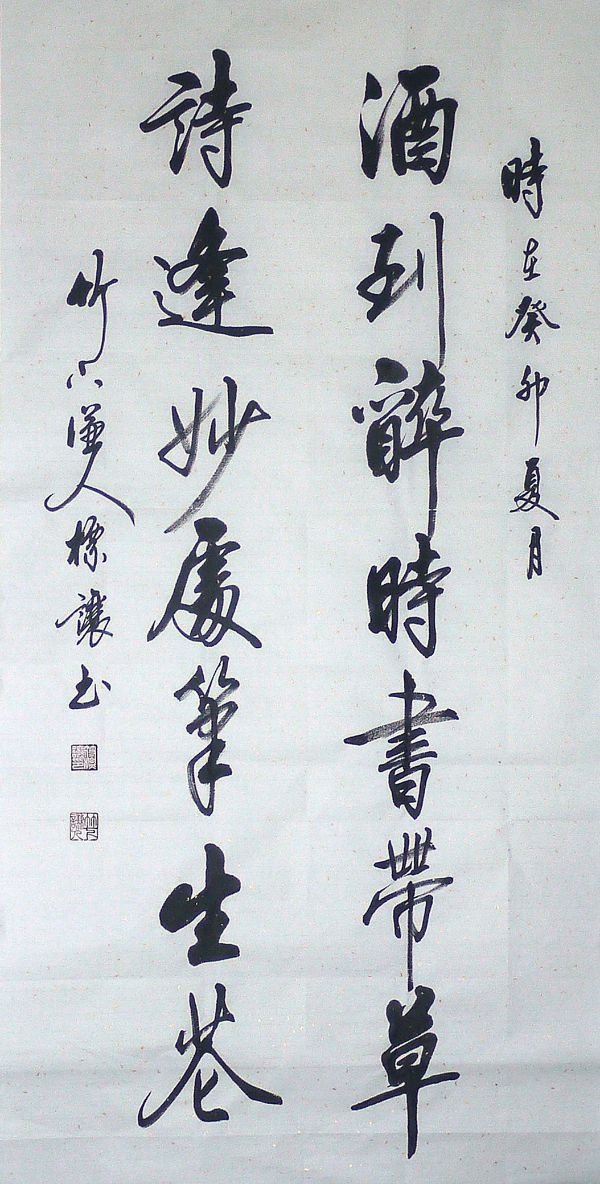 時在癸卯夏月
酒到酣時書帶草
詩逢妙處筆生花
竹下漢人標讓书